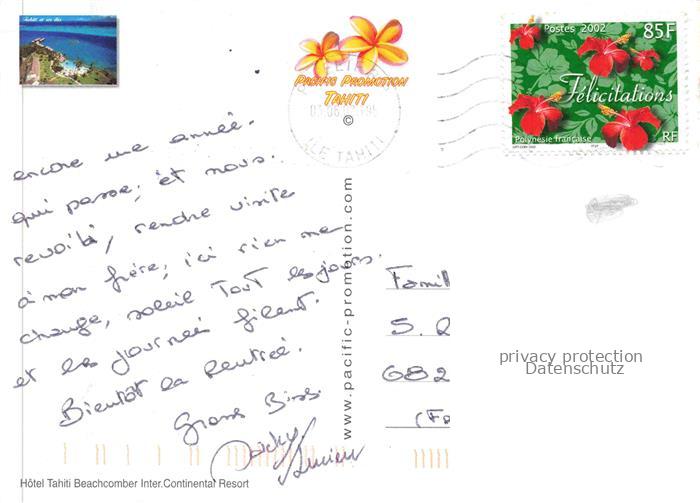 Tahiti et ses îles
PACIFIC PROMOTION
TAHITI
©
ILE TAHITI
Postes 2002 85F
Félicitations
Polynésie française RF
encore une année.
qui passe, et nous.
revoilà, rendre visite
à mon frère, ici rien ne
change, soleil tout les jours.
et les journées filent.
Bientôt la rentrée.
Gross Bises
Lucien
www.pacific-promotion.com
Famill
S. 
682
(Fr
privacy protection
Datenschutz
Hôtel Tahiti Beachcomber Inter.Continental Resort